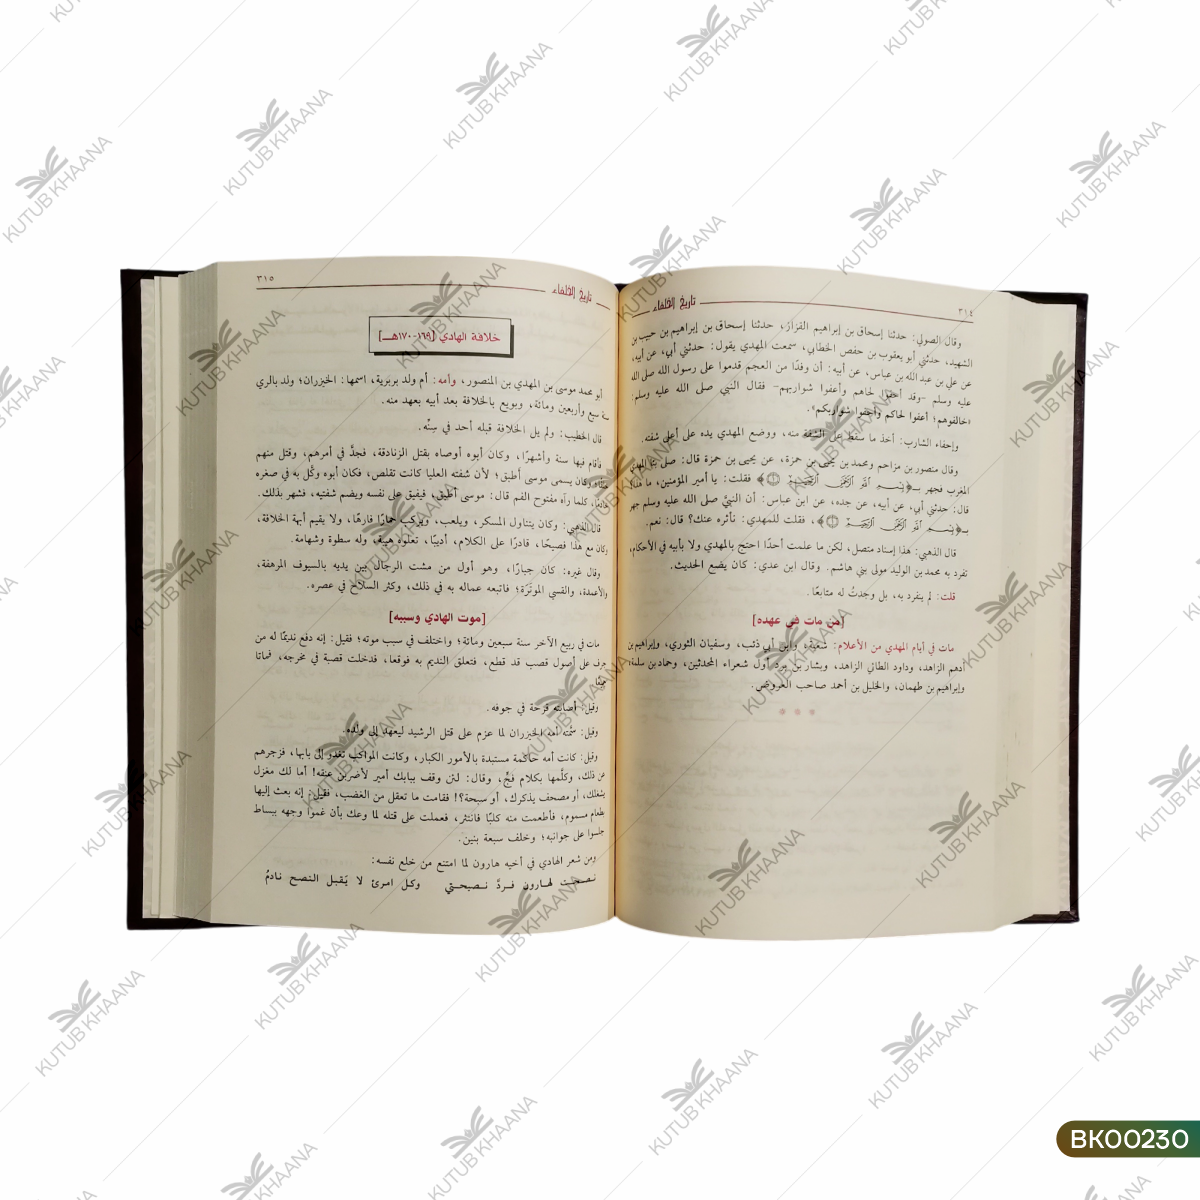 تاريخ الخلفاء
٣١٤
وقال الصولي: حدثنا إسحاق بن إبراهيم القزاز، حدثنا إسحاق بن إبراهيم بن حبيب بن
الشهيد، حدثني أبو يعقوب بن حفص الخطابي، سمعت المهدي يقول: حدثني أبي، عن أبيه،
عن علي بن عبد الله بن عباس، عن أبيه: أن وفدًا من العجم قدموا على رسول الله صلى الله
عليه وسلم -وقد أحفوا لحاهم وأعفوا شواربهم- فقال النبي صلى الله عليه وسلم:
«خالفوهم؛ أعفوا لحاكم وأحفوا شواربكم».
وإحفاء الشارب: أخذ ما سقط على الشفة منه، ووضع المهدي يده على أعلى شفته.
وقال منصور بن مزاحم ومحمد بن يحيى بن حمزة، عن يحيى بن حمزة قال: صلى بنا المهدي
المغرب فجهر بـ﴿بِسْمِ اللَّهِ الرَّحْمَنِ الرَّحِيمِ ۝﴾ فقلت: يا أمير المؤمنين، ما هذا؟
قال: حدثني أبي، عن أبيه، عن جده، عن ابن عباس: أن النبيَّ صلى الله عليه وسلم جهر
بـ﴿بِسْمِ اللَّهِ الرَّحْمَنِ الرَّحِيمِ ۝﴾، فقلت للمهدي: نأثره عنك؟ قال: نعم.
قال الذهبي: هذا إسناد متصل، لكن ما علمت أحدًا احتج بالمهدي ولا بأبيه في الأحكام،
تفرد به محمد بن الوليد مولى بني هاشم. وقال ابن عدي: كان يضع الحديث.
قلت: لم ينفرد به، بل وجدتُ له متابعًا.
[من مات في عهده]
مات في أيام المهدي من الأعلام: شعبة، وابن أبي ذئب، وسفيان الثوري، وإبراهيم بن
أدهم الزاهد، وداود الطائي الزاهد، وبشار بن برد أول شعراء المحدثين، وحماد بن سلمة،
وإبراهيم بن طهمان، والخليل بن أحمد صاحب العروض.
تاريخ الخلفاء
٣١٥
خلافة الهادي [١٦٩-١٧٠هـ]
أبو محمد موسى بن المهدي بن المنصور، وأمه: أم ولد بربرية، اسمها: الخيزران؛ ولد بالري
سنة سبع وأربعين ومائة، وبويع بالخلافة بعد أبيه بعهد منه.
قال الخطيب: ولم يل الخلافة قبله أحد في سِنّه.
فأقام فيها سنة وأشهرًا، وكان أبوه أوصاه بقتل الزنادقة، فجدَّ في أمرهم، وقتل منهم
وكان يسمى موسى أطبق؛ لأن شفته العليا كانت تقلص، فكان أبوه وكَّل به في صغره
خادمًا، كلما رآه مفتوح الفم قال: موسى أطبق، فيفيق على نفسه ويضم شفتيه، فشهر بذلك.
قال الذهبي: وكان يتناول المسكر، ويلعب، ويركب حمارًا فارهًا، ولا يقيم أبهة الخلافة،
وكان مع هذا فصيحًا، قادرًا على الكلام، أديبًا، تعلوه هيبة، وله سطوة وشهامة.
وقال غيره: كان جبارًا، وهو أول من مشت الرجال بين يديه بالسيوف المرهفة،
والأعمدة، والقسي الموتّرة؛ فاتبعه عماله به في ذلك، وكثر السلاح في عصره.
[موت الهادي وسببه]
مات في ربيع الآخر سنة سبعين ومائة؛ واختلف في سبب موته؛ فقيل: إنه دفع نديمًا له من
جرف على أصول قصب قد قطع، فتعلق النديم به فوقعا، فدخلت قصبة في منخرجه، فماتا
جميعًا
وقيل: أصابته قرحة في جوفه.
وقيل: سمّته أمه الخيزران لما عزم على قتل الرشيد ليعهد إلى ولده.
وقيل: كانت أمه حاكمة مستبدة بالأمور الكبار، وكانت المواكب تغدو إلى بابها، فزجرهم
عن ذلك، وكلَّمها بكلام فجٍّ، وقال: لئن وقف ببابك أمير لأضربن عنقه! أما لك مغزل
يشغلك، أو مصحف يذكرك، أو سبحة؟! فقامت ما تعقل من الغضب، فقيل: إنه بعث إليها
بطعام مسموم، فأطعمت منه كلبًا فانتثر، فعملت على قتله لما وعك بأن غموا وجهه ببساط
جلسوا على جوانبه؛ وخلف سبعة بنين.
ومن شعر الهادي في أخيه هارون لما امتنع من خلع نفسه:
نصحت لهارون فردَّ نصيحتي وكل امرئ لا يَقبل النصح نادمُ
KUTUB KHAANA
BK00230